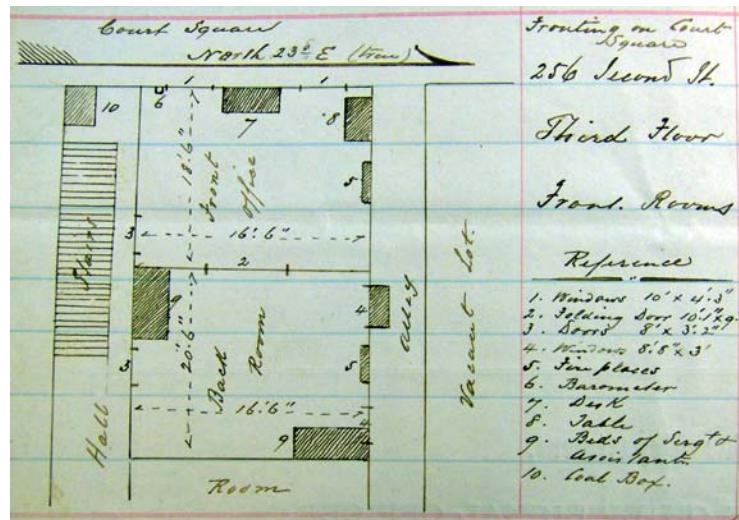 Court Square
North 23° E (true)
1
1
10
6
7
8
18'.6"
Front
office
5
3
16'.6"
2
Stairs
9
4
Alley
Vacant Lot.
20'.6"
Back
Room
5
3
16'.6"
4
9
Hall
Room
Fronting on Court
Square
256 Second St.
Third Floor
Front. Rooms
Reference
1. Windows 10' x 4'.3"
2. Folding Door 10'.1" x 9.
3. Doors 8' x 3'.2"
4. Windows 8'.8" x 3'
5. Fire places
6. Barometer
7. Desk
8. Table
9. Beds of Sergt &
Assistant
10. Coal Box.